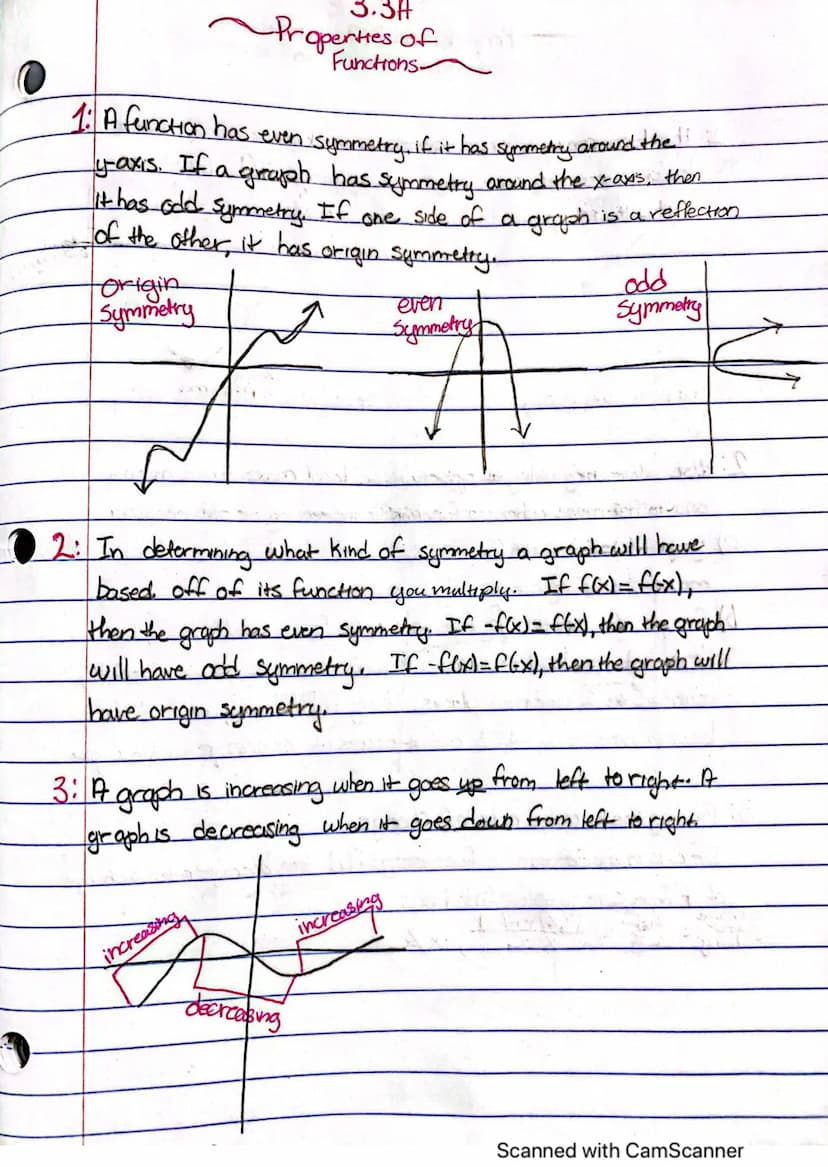 3.3A
Properties of
Functions
1: A function has even symmetry, if it has symmetry around the
y-axis. If a graph has symmetry around the x-axis, then
it has odd symmetry. If one side of a graph is a reflection
of the other, it has origin symmetry.
origin
symmetry
even
symmetry
odd
symmetry
2: In determining what kind of symmetry a graph will have
based off of its function you multiply. If f(x)=f(-x),
then the graph has even symmetry. If -f(x)=f(-x), then the graph
will have odd symmetry. If -f(x)=f(-x), then the graph will
have origin symmetry.
3: A graph is increasing when it goes up from left to right. A
graph is decreasing when it goes down from left to right.
increasing
increasing
decreasing
Scanned with CamScanner